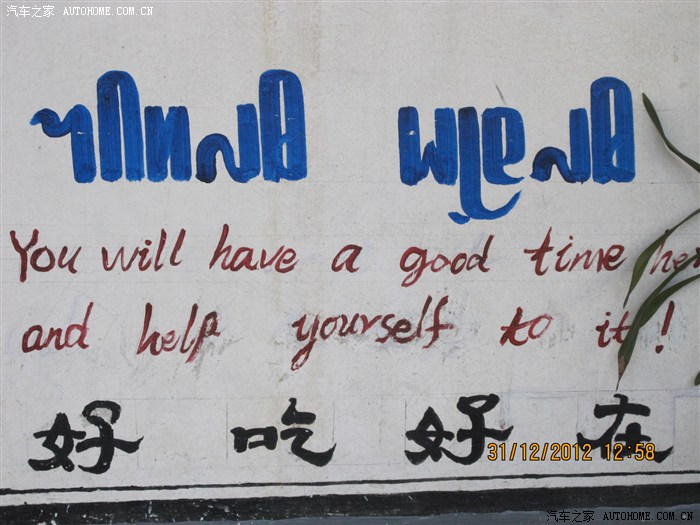 汽车之家 AUTOHOME.COM.CN
You will have a good time her
and help yourself to it!
好吃好在
31/12/2012 12:58
汽车之家 AUTOHOME.COM.CN